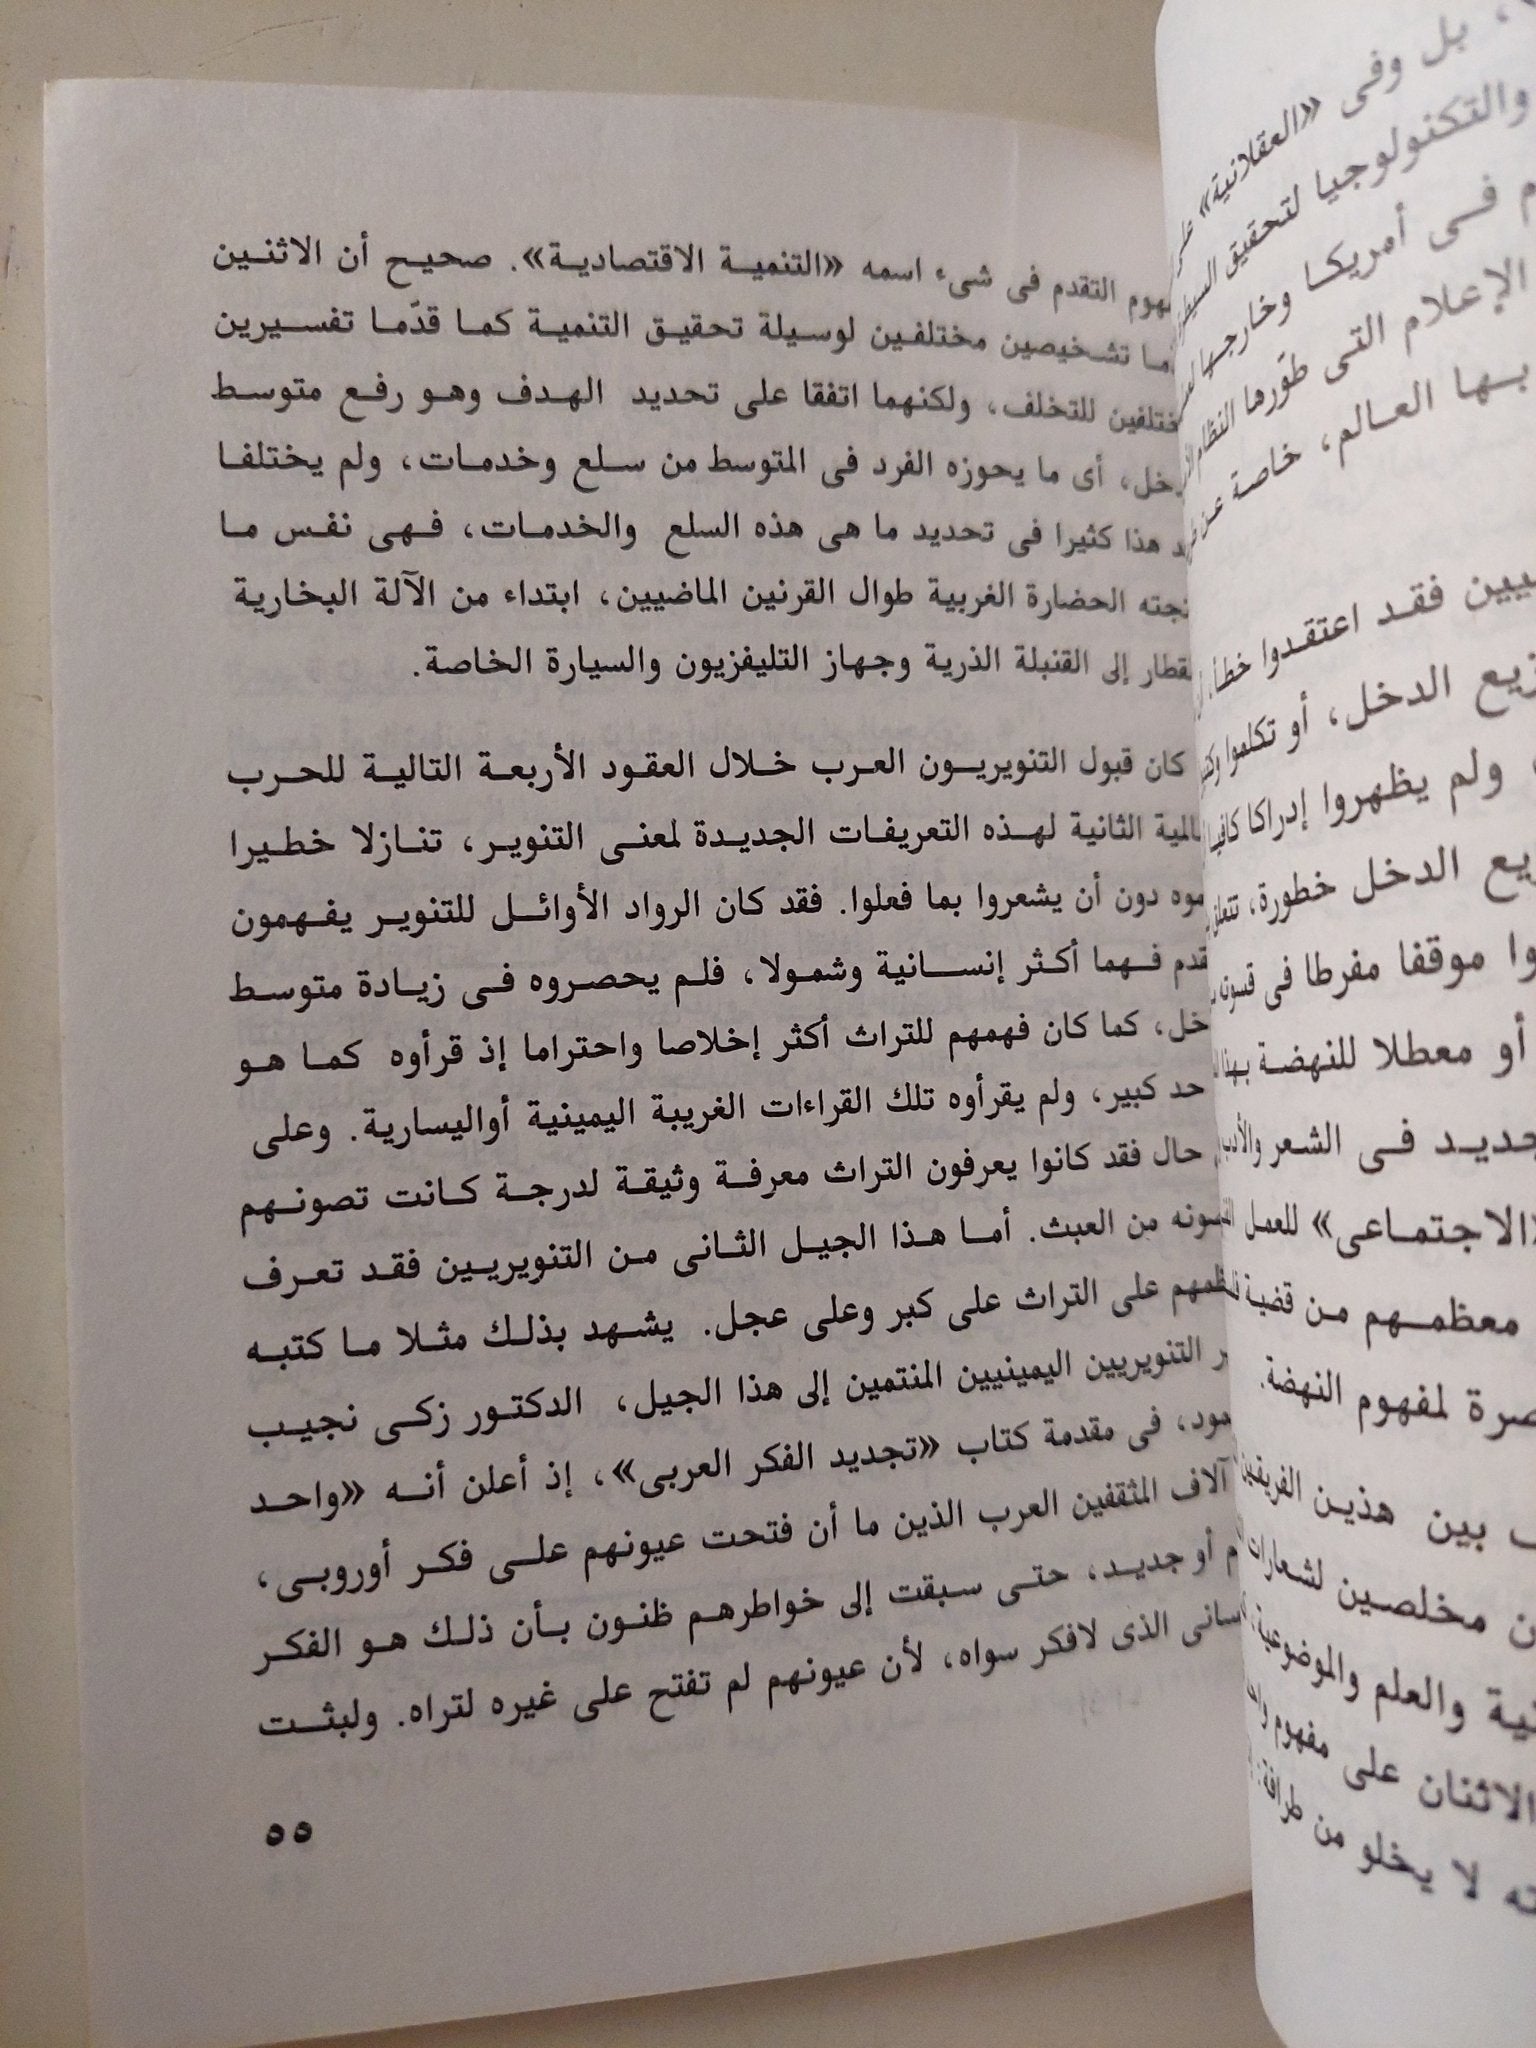 التقدم فى شىء اسمه «التنمية الاقتصادية». صحيح أن الاثنين
تشخيصين مختلفين لوسيلة تحقيق التنمية كما قدّما تفسيرين
للتخلف، ولكنهما اتفقا على تحديد الهدف وهو رفع متوسط
أى ما يحوزه الفرد فى المتوسط من سلع وخدمات، ولم يختلفا
هذا كثيرا فى تحديد ما هى هذه السلع والخدمات، فهى نفس ما
الحضارة الغربية طوال القرنين الماضيين، ابتداء من الآلة البخارية
إلى القنبلة الذرية وجهاز التليفزيون والسيارة الخاصة.
كان قبول التنويريون العرب خلال العقود الأربعة التالية للحرب
الثانية لهذه التعريفات الجديدة لمعنى التنوير، تنازلا خطيرا
دون أن يشعروا بما فعلوا. فقد كان الرواد الأوائل للتنوير يفهمون
فهما أكثر إنسانية وشمولا، فلم يحصروه فى زيادة متوسط
كما كان فهمهم للتراث أكثر إخلاصا واحتراما إذ قرأوه كما هو
حد كبير، ولم يقرأوه تلك القراءات الغريبة اليمينية أواليسارية. وعلى
حال فقد كانوا يعرفون التراث معرفة وثيقة لدرجة كانت تصونهم
من العبث. أما هذا الجيل الثانى من التنويريين فقد تعرف
على التراث على كبر وعلى عجل. يشهد بذلك مثلا ما كتبه
التنويريين اليمينيين المنتمين إلى هذا الجيل، الدكتور زكى نجيب
فى مقدمة كتاب «تجديد الفكر العربى»، إذ أعلن أنه «واحد
آلاف المثقفين العرب الذين ما أن فتحت عيونهم على فكر أوروبى،
أو جديد، حتى سبقت إلى خواطرهم ظنون بأن ذلك هو الفكر
الذى لافكر سواه، لأن عيونهم لم تفتح على غيره لتراه. ولبثت
٥٥
بل وفى «العقلانية»
والتكنولوجيا لتحقيق
فى أمريكا وخارجها
الإعلام التى طوّرها النظام
بها العالم، خاصة عن
فقد اعتقدوا خطأ
الدخل، أو تكلموا
ولم يظهروا إدراكا كافيا
الدخل خطورة،
موقفا مفرطا فى
أو معطلا للنهضة
فى الشعر والأدب
الاجتماعى» للعمل
معظمهم من قضية
لمفهوم النهضة.
بين هذين الفريقين
مخلصين لشعارات
والعلم والموضوعية
الاثنان على مفهوم
لا يخلو من طرافة: